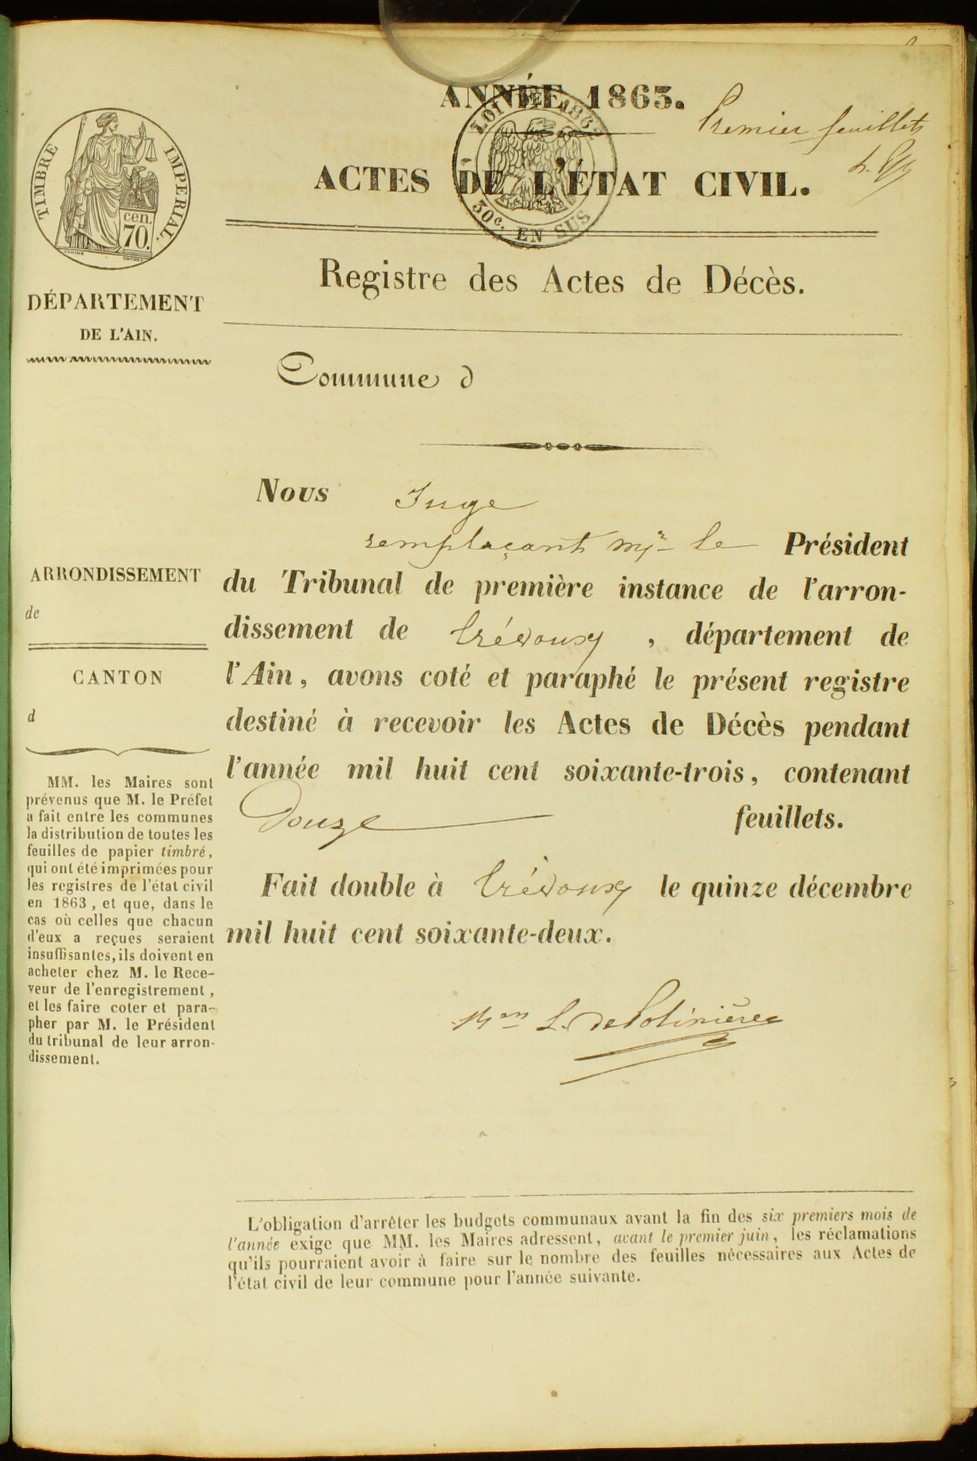 ANNÉE 1863.
Premier feuillet
ACTES DE L'ÉTAT CIVIL.
LOI DE 1862
50c. EN SUS
TIMBRE IMPÉRIAL.
cen.
70.
Registre des Actes de Décès.
DÉPARTEMENT
DE L'AIN.
Commune d
Nous Juge
remplaçant Mr le Président
du Tribunal de première instance de l'arron-
dissement de Trévoux, département de
l'Ain, avons coté et paraphé le présent registre
destiné à recevoir les Actes de Décès pendant
l'année mil huit cent soixante-trois, contenant
Douze feuillets.
Fait double à Trévoux le quinze décembre
mil huit cent soixante-deux.
ARRONDISSEMENT
de
CANTON
d
MM. les Maires sont
prévenus que M. le Préfet
a fait entre les communes
la distribution de toutes les
feuilles de papier timbré,
qui ont été imprimées pour
les registres de l'état civil
en 1863, et que, dans le
cas où celles que chacun
d'eux a reçues seraient
insuffisantes, ils doivent en
acheter chez M. le Rece-
veur de l'enregistrement,
et les faire coter et para-
pher par M. le Président
du tribunal de leur arron-
dissement.
L'obligation d'arrêter les budgets communaux avant la fin des six premiers mois de
l'année exige que MM. les Maires adressent, avant le premier juin, les réclamations
qu'ils pourraient avoir à faire sur le nombre des feuilles nécessaires aux Actes de
l'état civil de leur commune pour l'année suivante.